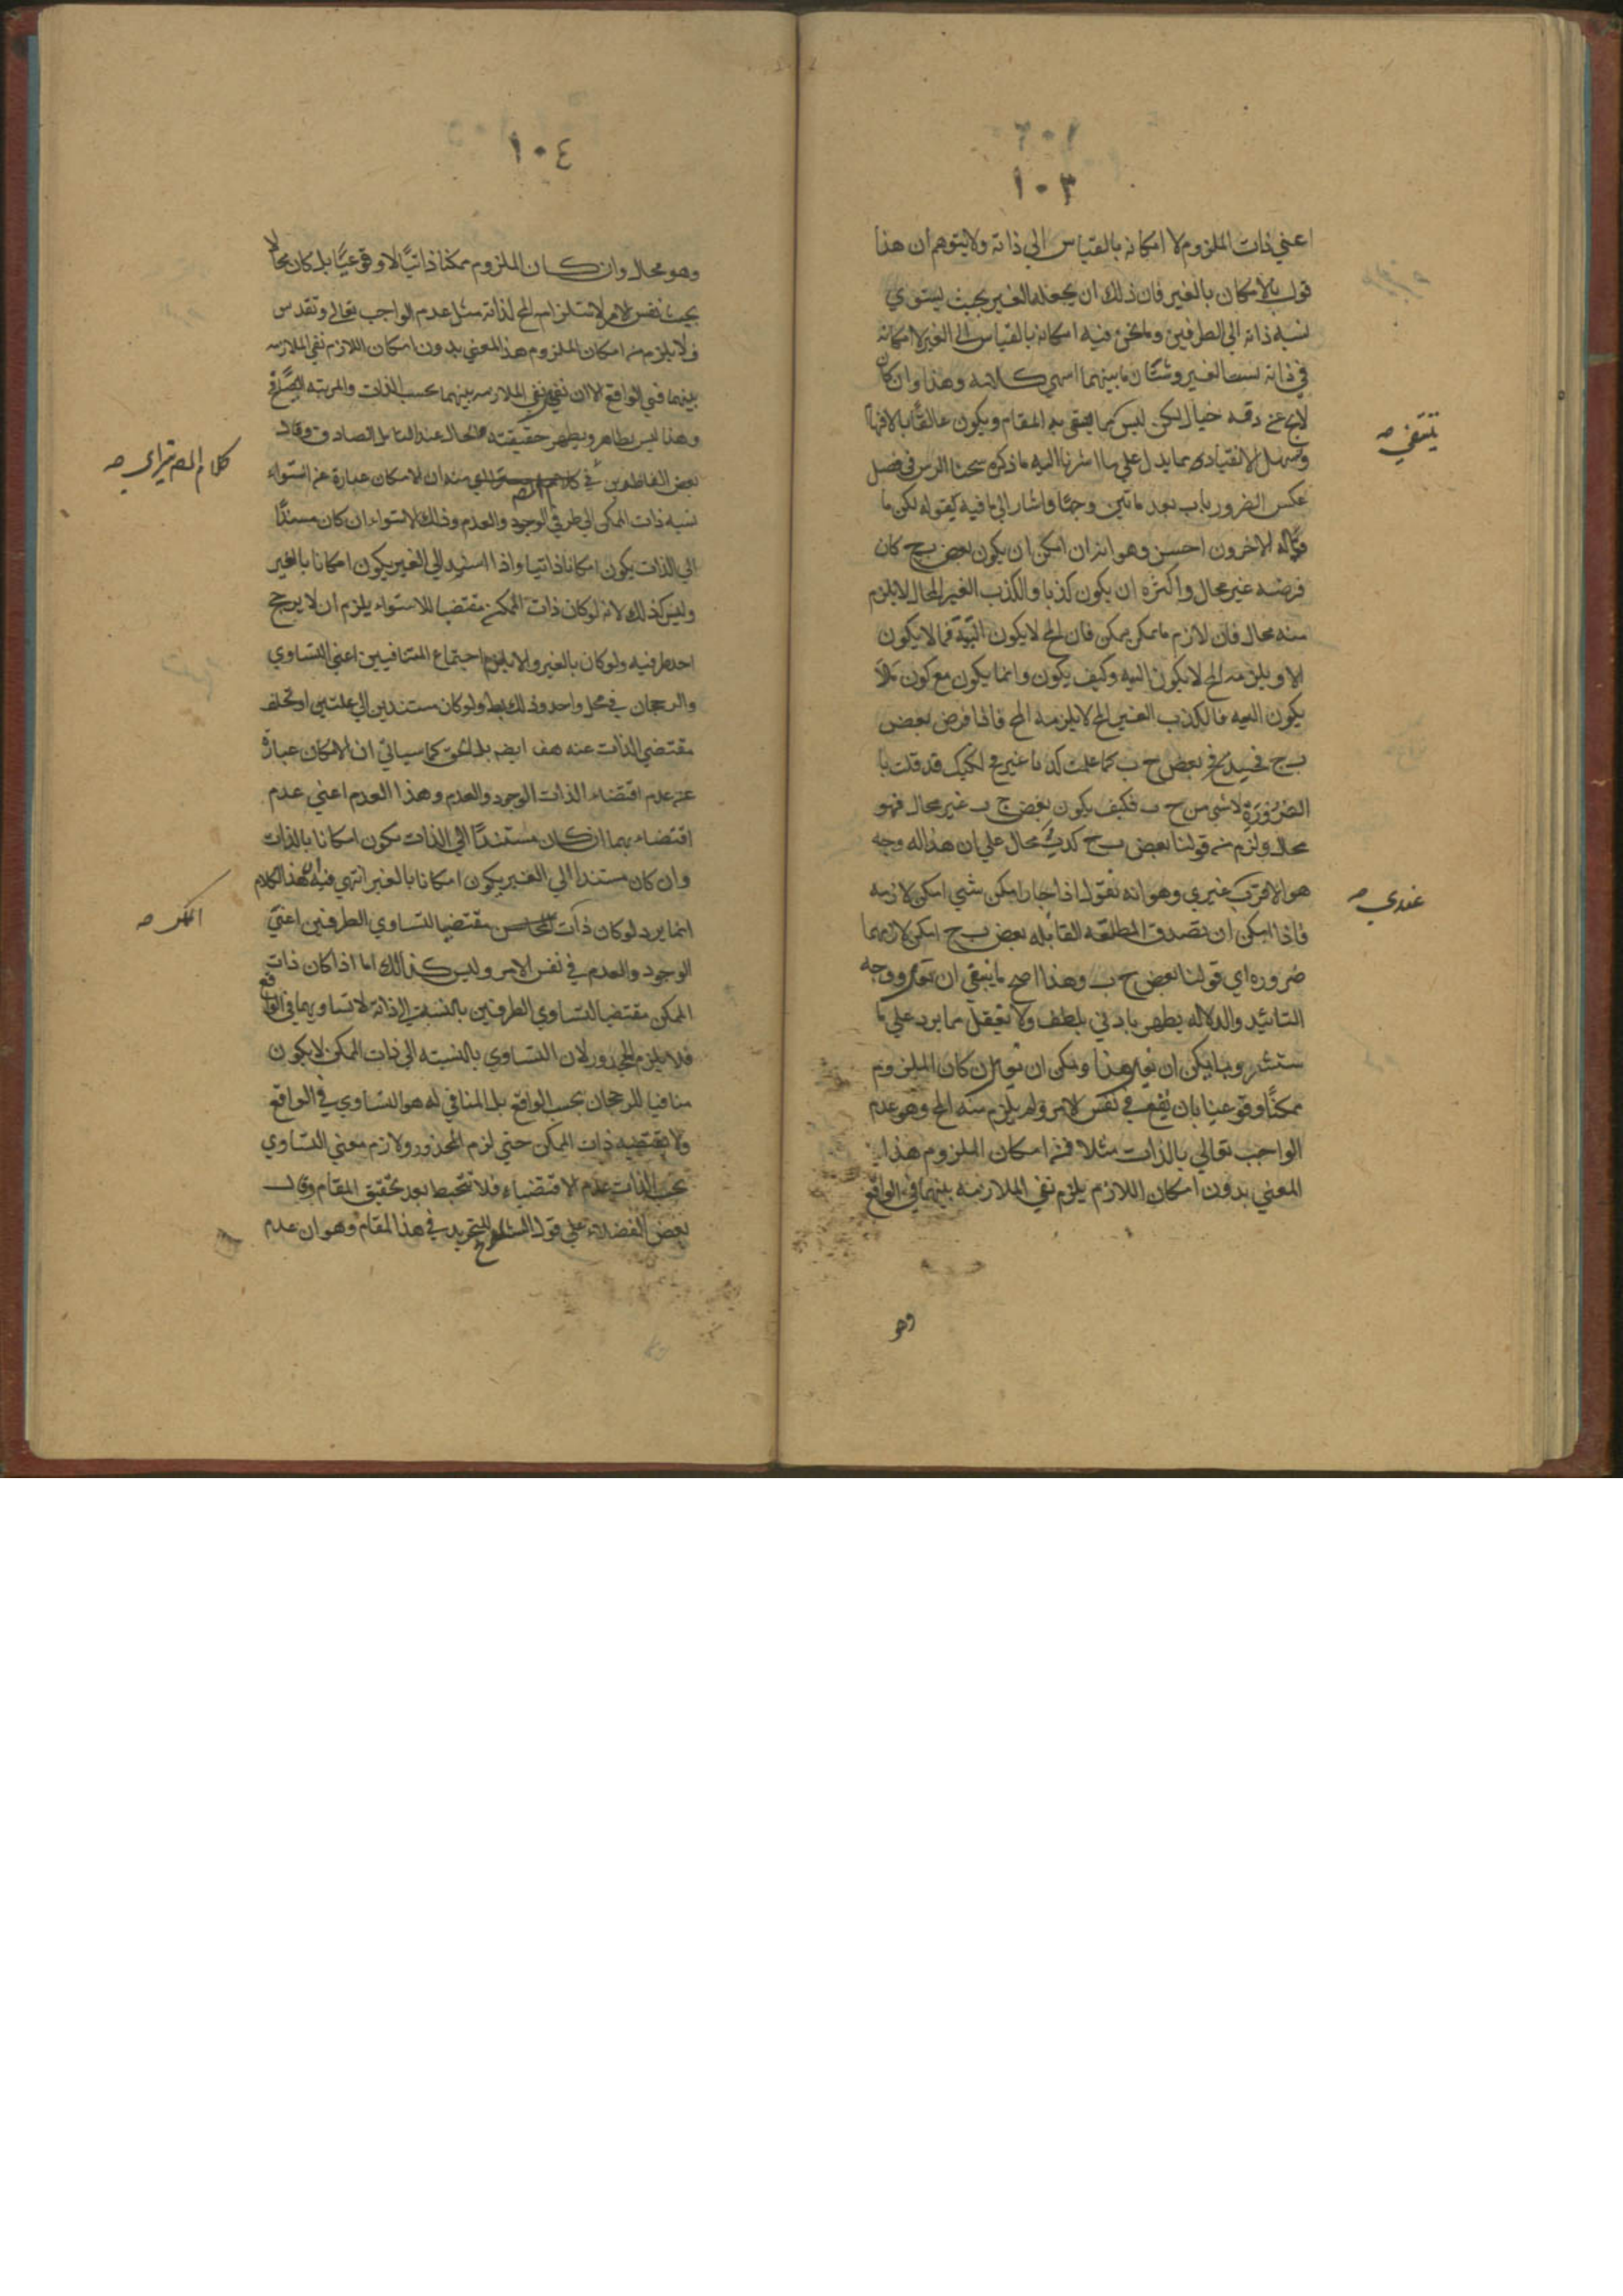 ١٠٣
اعني ذات الملزوم لا امكانه بالقياس الي ذاته ولا يتوهم ان هذا
قول بالامكان بالغير فان ذلك ان يجعله الغير بحيث يستوي
نسبه ذاته الي الطرفين وما نحن فيه امكانه بالقياس الي الغير لا امكانه
في ذاته بسبب الغير وشتان ما بينهما انتهي كلامه وهذا وان كان
لايخ عن دقه خيال لكن ليس كما ينبغي بهذا المقام ويكون عالقا بالافهام
وسهل الانقياد مما يدل علي ما اشرنا اليه ما ذكره الرس في فصل
عكس الضروريات بعد ما تبين وجها واشار الي ما فيه بقوله لكن ما
قاله الاخرون احسن وهو انه ان امكن ان يكون بعض ب ج كان
فرضه غير محال واكثره ان يكون كذبا والكذب الغير المحال لا يلزم
منه محال فان لازم ما يمكن يمكن فان المح لا يكون البتة فما لا يكون
الا ويلزمه المح لا يكون البته وكيف يكون وانما يكون مع كون ما لا
يكون البته فالكذب الغير المح لا يلزمه المح فاذا فرض بعض
ب ج فحينئذ بعض ج ب كما علمت لكنك قد قلت با
الضرورة لاشي من ج ب فكيف يكون بعض ج ب غير محال فهو
محال ولزم من قولنا بعض ب ج كذب محال علي ان هذا له وجه
هو الاقرب غيري وهو انه نقول اذا جاز امكن شي امكن لازمه
فاذا امكن ان تصدق المطلقه القابله بعض ب ج امكن لازمها
ضروره اي قولنا بعض ج ب وهذا اصح ما ينبغي ان يقال ووجه
التائيد والدلاله يظهر بادني بلطف ولا تغفل مما يرد علي ما
ستشعر وبما يمكن ان يقال هذا ويمكن ان يقال ان كان الملزوم
ممكنا وقوعيا بان يقع في نفس الامر ولم يلزم منه المح وهو عدم
الواجب تعالي بالذات مثلا فمن امكان الملزوم هذا
المعني بدون امكان اللازم يلزم نفي الملازمه بينهما في الواقع
وهو
ينبغي صه
عندي صه
١٠٤
وهو محال وان كان الملزوم ممكنا ذاتيا لا وقوعيا بل كان محالا
بحيث نفس الامر لاستلزامه المح لذاته مثل عدم الواجب تعالي وتقدس
فلا يلزم من امكان الملزوم هذا المعني بدون امكان اللازم نفي الملازمه
بينهما في الواقع الا ان نفي الملازمه بينهما بحسب الذات والمرتبه
وهذا ليس بظاهر ويظهر حقيقته الحال عند التامل الصادق وقال
بعض الفاطنين في كلام المص ان الامكان عبارة عن استواء
نسبه ذات الممكن الي طرفي الوجود والعدم وذلك الاستواء ان كان مستندا
الي الذات يكون امكانا ذاتيا واذا استند الي الغير يكون امكانا بالغير
وليس كذلك لانه لو كان ذات الممكن مقتضيا للاستواء يلزم ان لا يرجح
احد طرفيه ولو كان بالغير والا يلزم اجتماع المتنافيين اعني التساوي
والرجحان في محل واحد وذلك بط ولو كان مستندين الي علتين او تخلف
مقتضي الذات عنه هف ايضا بل الحق كما سياتي ان الامكان عبارة
عن عدم اقتضاء الذات الوجود والعدم وهذا العدم اعني عدم
اقتضاءهما ان كان مستندا الي الذات يكون امكانا بالذات
وان كان مستندا الي الغير يكون امكانا بالغير انتهي فيه ان هذا الكلام
انما يرد لو كان ذات مقتضيا لتساوي الطرفين اعني
الوجود والعدم في نفس الامر وليس كذالك اما اذا كان ذات
الممكن مقتضيا لتساوي الطرفين بالنسبة الي ذاته لا تساويهما في الواقع
فلا يلزم المحذور لان التساوي بالنسبه الي ذات الممكن لا يكون
منافيا للرجحان بحسب الواقع بل المنافي له هو التساوي في الواقع
ولا يقتضيه ذات الممكن حتي لزم المحذور ولازم معني التساوي
بحسب الذات عدم الاقتضاء فلا تخبط بعد تحقيق المقام وقال
بعض الفضلاء علي قول الشارح للتجريد في هذا المقام وهو ان عدم
كلام المص تيراي صه
الممكن صه